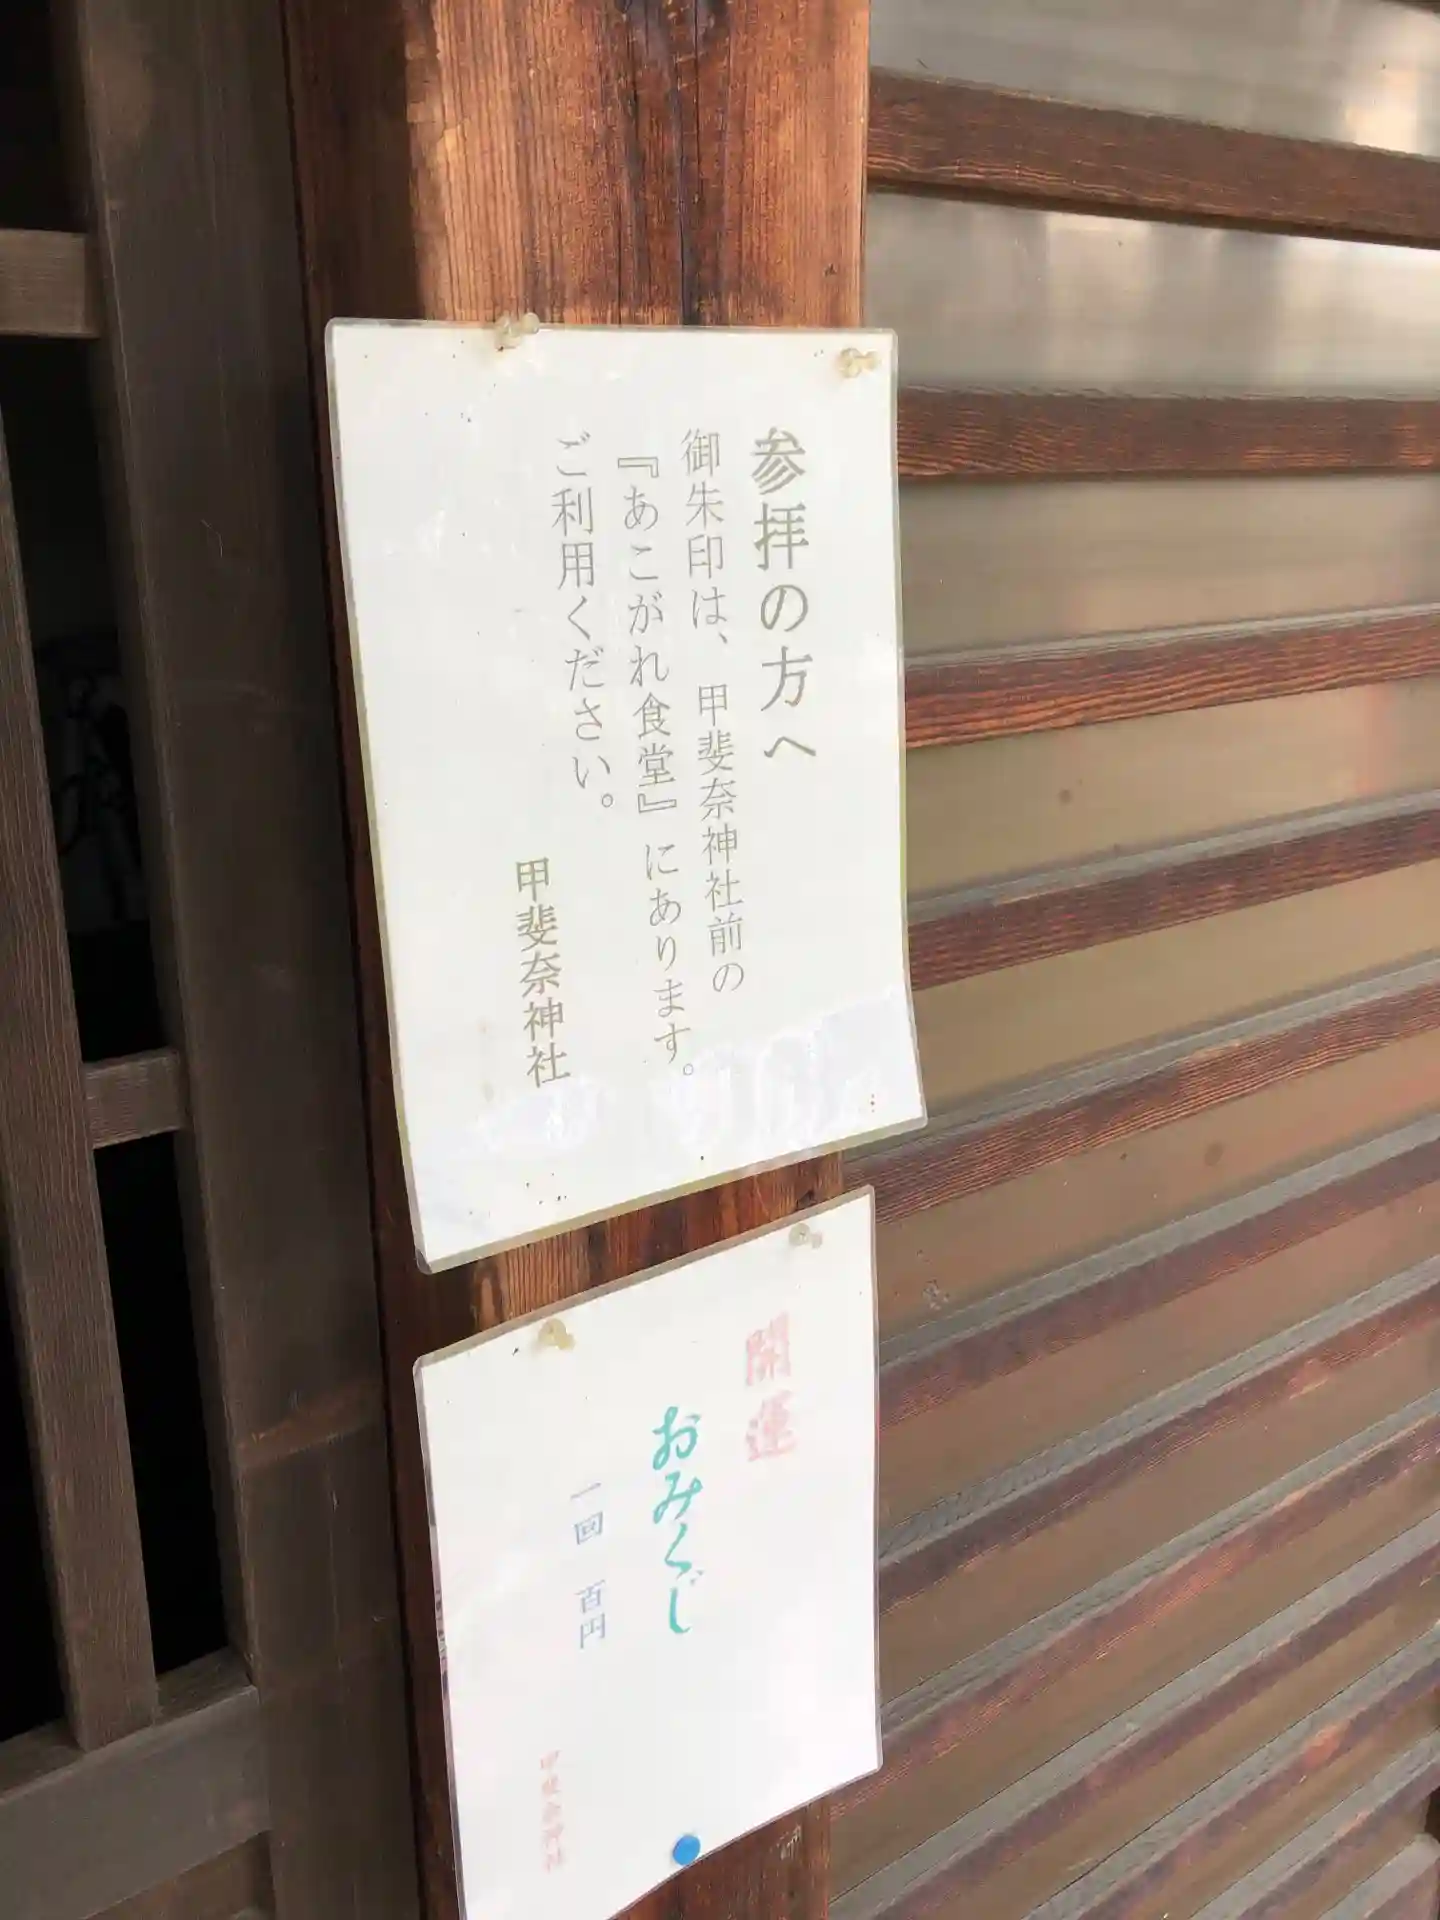 参拝の方へ
御朱印は、甲斐奈神社前の
『あこがれ食堂』にあります。
ご利用ください。
甲斐奈神社
開運
おみくじ
一回 百円
甲斐奈神社